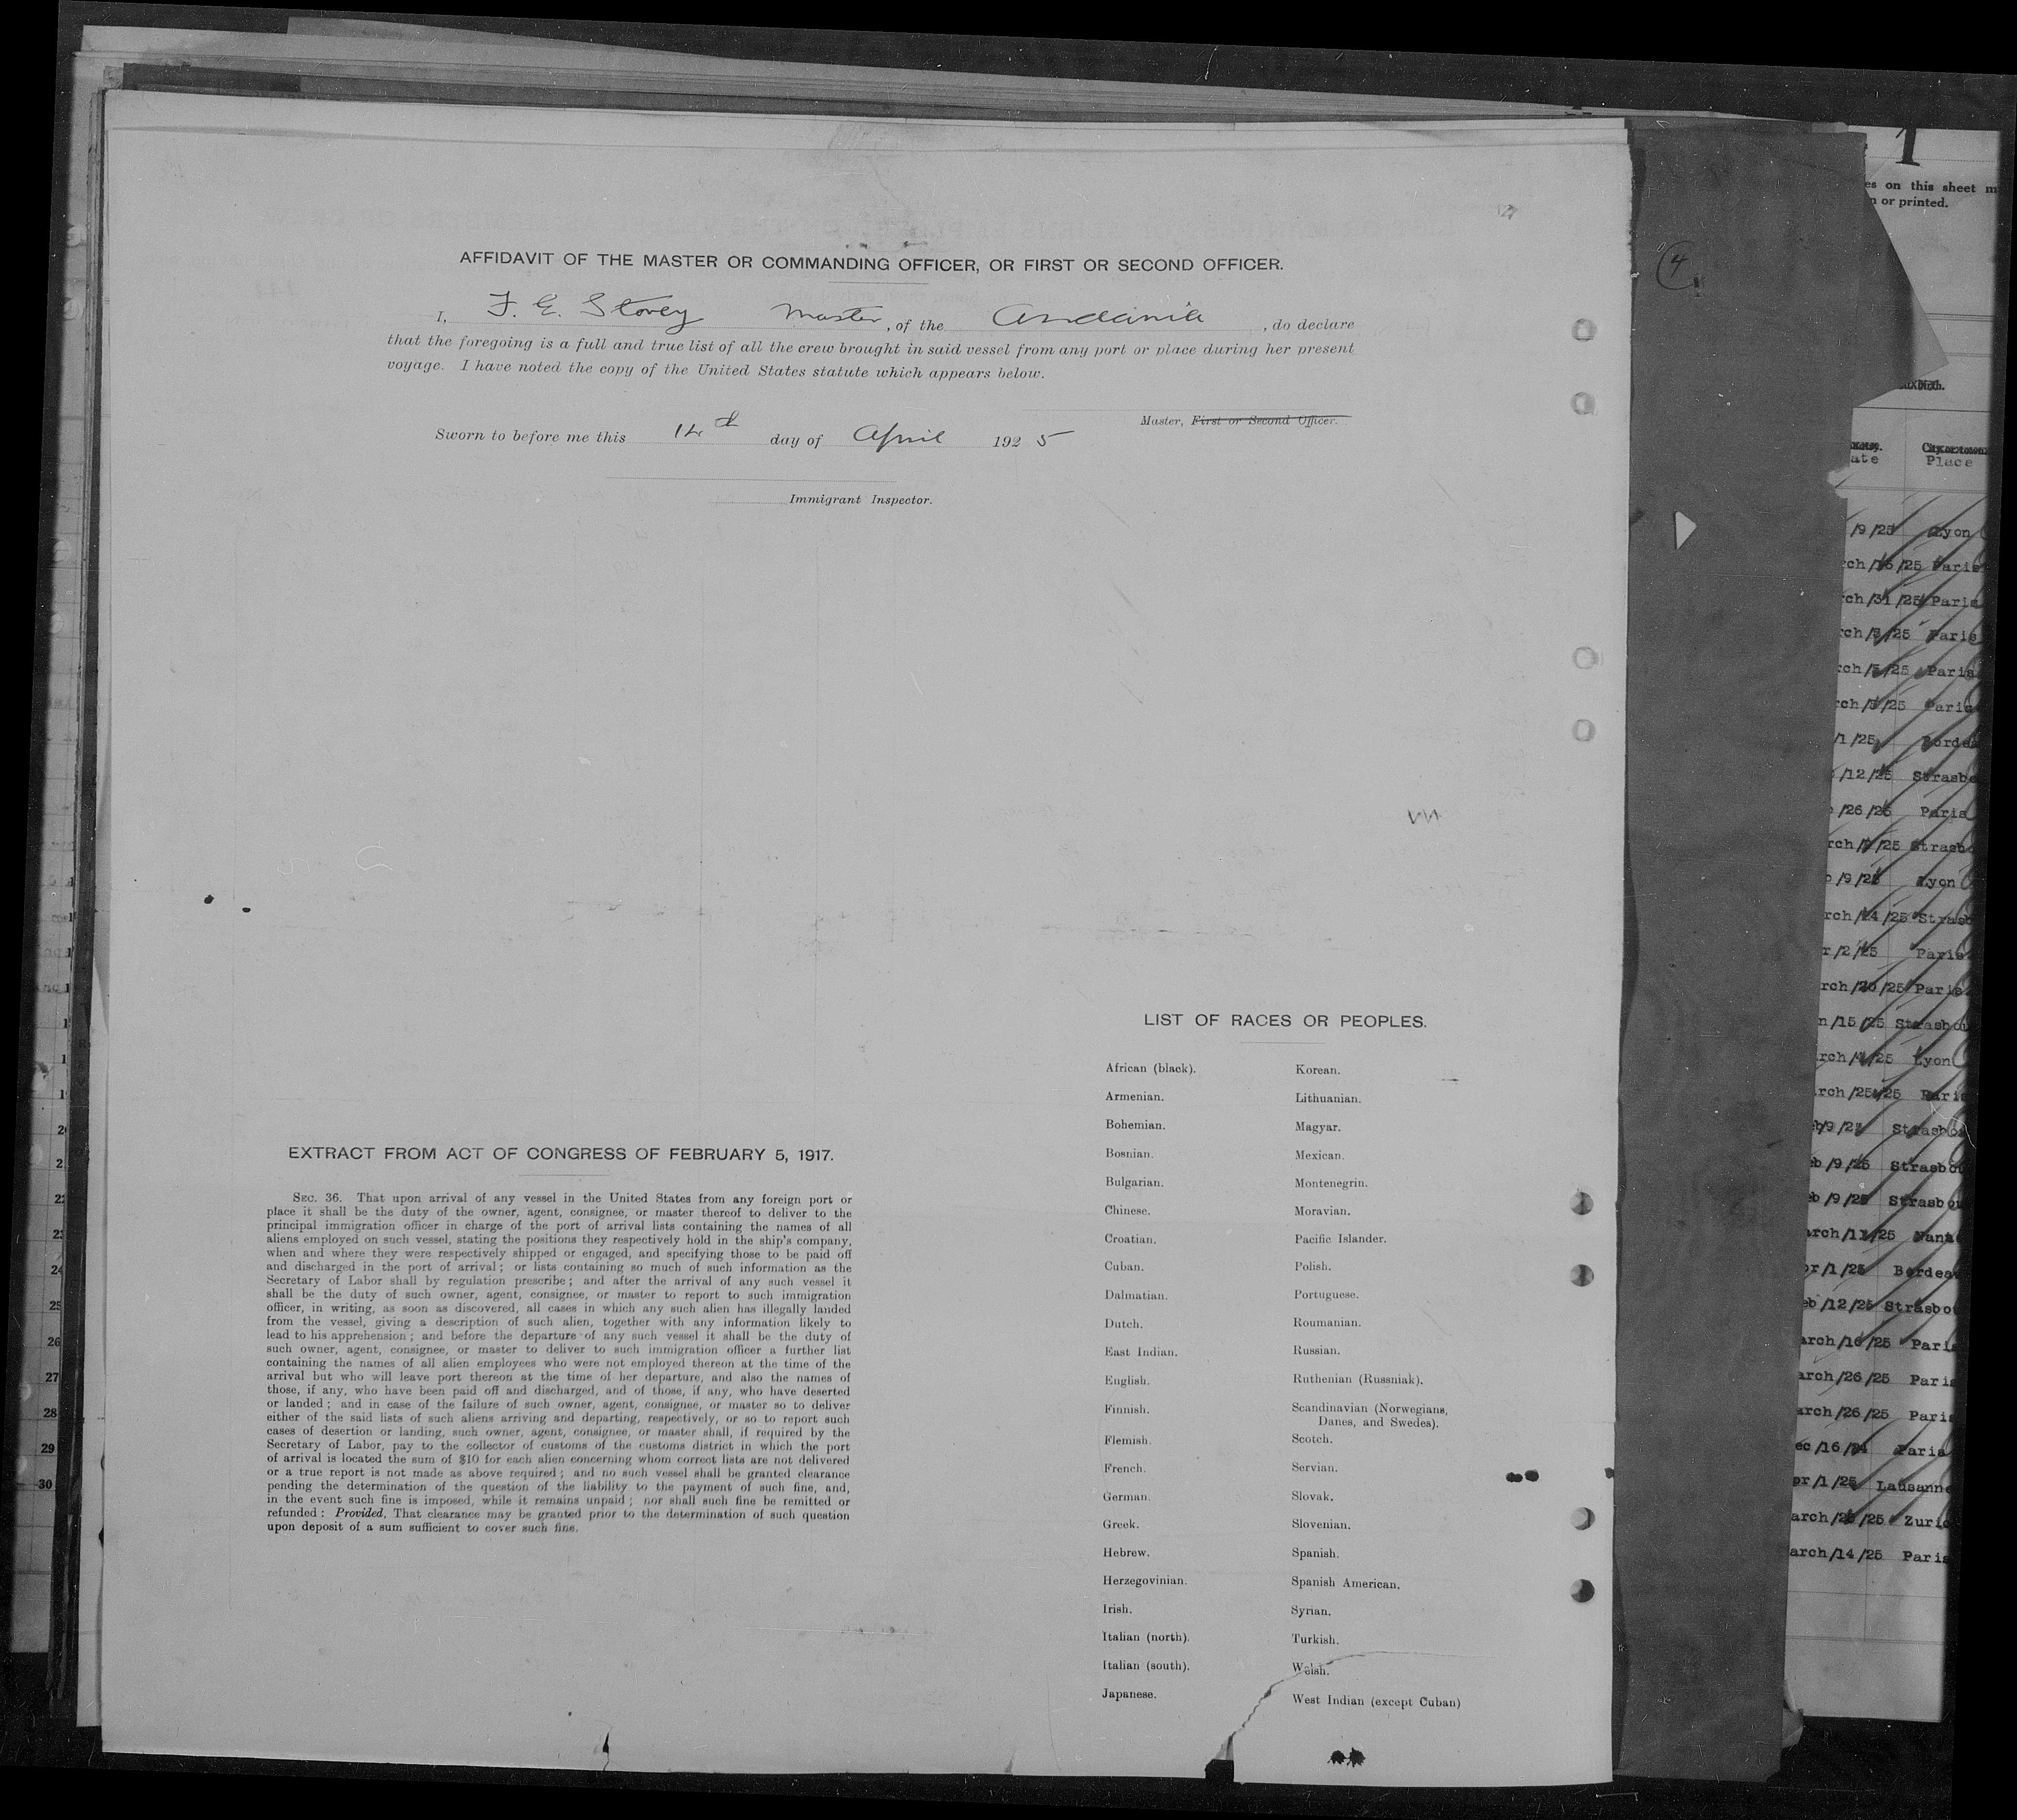 AFFIDAVIT OF THE MASTER OR COMMANDING OFFICER, OR FIRST OR SECOND OFFICER.
I, F. E. Storey Master, of the Andania, do declare
that the foregoing is a full and true list of all the crew brought in said vessel from any port or place during her present
voyage. I have noted the copy of the United States statute which appears below.
Master, First or Second Officer.
Sworn to before me this 14th day of April 1925
Immigrant Inspector.
EXTRACT FROM ACT OF CONGRESS OF FEBRUARY 5, 1917.
SEC. 36. That upon arrival of any vessel in the United States from any foreign port or
place it shall be the duty of the owner, agent, consignee, or master thereof to deliver to the
principal immigration officer in charge of the port of arrival lists containing the names of all
aliens employed on such vessel, stating the positions they respectively hold in the ship's company,
when and where they were respectively shipped or engaged, and specifying those to be paid off
and discharged in the port of arrival; or lists containing so much of such information as the
Secretary of Labor shall by regulation prescribe; and after the arrival of any such vessel it
shall be the duty of such owner, agent, consignee, or master to report to such immigration
officer, in writing, as soon as discovered, all cases in which any such alien has illegally landed
from the vessel, giving a description of such alien, together with any information likely to
lead to his apprehension; and before the departure of any such vessel it shall be the duty of
such owner, agent, consignee, or master to deliver to such immigration officer a further list
containing the names of all alien employees who were not employed thereon at the time of the
arrival but who will leave port thereon at the time of her departure, and also the names of
those, if any, who have been paid off and discharged, and of those, if any, who have deserted
or landed; and in case of the failure of such owner, agent, consignee, or master so to deliver
either of the said lists of such aliens arriving and departing, respectively, or so to report such
cases of desertion or landing, such owner, agent, consignee, or master shall, if required by the
Secretary of Labor, pay to the collector of customs of the customs district in which the port
of arrival is located the sum of $10 for each alien concerning whom correct lists are not delivered
or a true report is not made as above required; and no such vessel shall be granted clearance
pending the determination of the question of the liability to the payment of such fine, and,
in the event such fine is imposed, while it remains unpaid; nor shall such fine be remitted or
refunded: Provided, That clearance may be granted prior to the determination of such question
upon deposit of a sum sufficient to cover such fine.
LIST OF RACES OR PEOPLES.
African (black).
Armenian.
Bohemian.
Bosnian.
Bulgarian.
Chinese.
Croatian.
Cuban.
Dalmatian.
Dutch.
East Indian.
English.
Finnish.
Flemish.
French.
German.
Greek.
Hebrew.
Herzegovinian.
Irish.
Italian (north).
Italian (south).
Japanese.
Korean.
Lithuanian.
Magyar.
Mexican.
Montenegrin.
Moravian.
Pacific Islander.
Polish.
Portuguese.
Roumanian.
Russian.
Ruthenian (Russniak).
Scandinavian (Norwegians,
Danes, and Swedes).
Scotch.
Servian.
Slovak.
Slovenian.
Spanish.
Spanish American.
Syrian.
Turkish.
Welsh.
West Indian (except Cuban)
4
1
on this sheet
or printed.
Place
/9/25 Lyon
/25 Paris
/31/25 Paris
/25 Paris
/25 Paris
/25 Paris
/1/25
/12/25
/26/25 Paris
/25
/9/25 Lyon
/25
/2/25 Paris
/25 Paris
/15/25
/25 Lyon
/25
/9/25
/9/25
/9/25
/25
/1/25
/12/25
/16/25
/26/25
/26/25
/16/24 Paris
/1/25 Lausanne
/25
/14/25